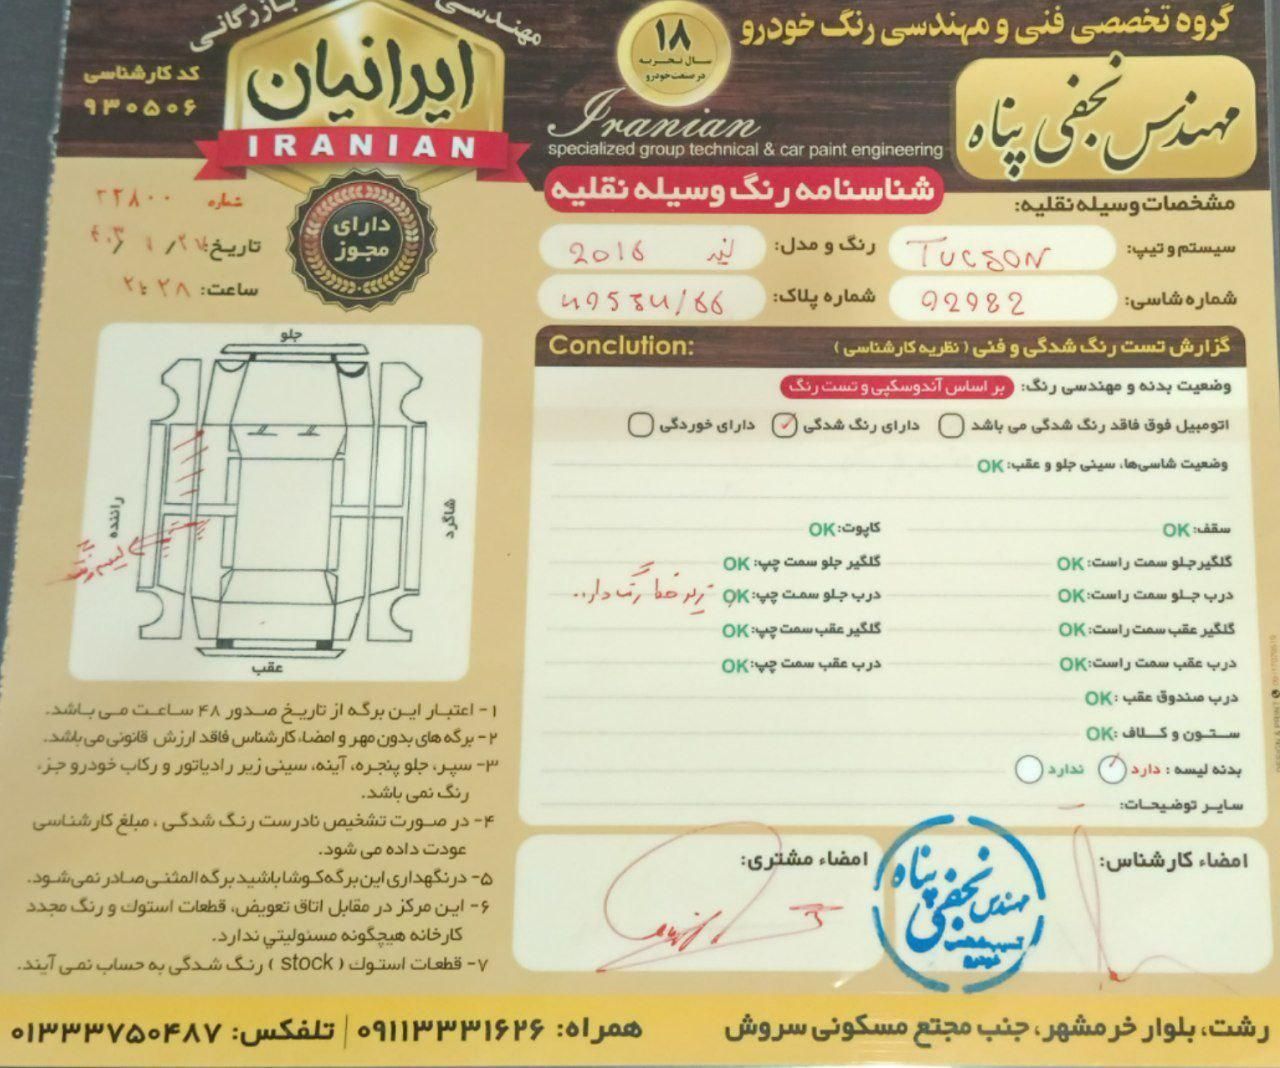 گروه تخصصی فنی و مهندسی رنگ خودرو
مهندس نجفی پناه
۱۸
سال تجربه
در صنعت خودرو
Iranian
specialized group technical & car paint engineering
مهندسی بازرگانی
ایرانیان
IRANIAN
کد کارشناسی
۹۳۰۵۰۶
دارای مجوز
شماره ۲۲۸۰۰
تاریخ:
ساعت: ۲۰:۲۸
شناسنامه رنگ وسیله نقلیه
مشخصات وسیله نقلیه:
سیستم و تیپ: TUCSON
رنگ و مدل: 2016
شماره شاسی: 92982
شماره پلاک:
گزارش تست رنگ شدگی و فنی ( نظریه کارشناسی )
Conclution:
وضعیت بدنه و مهندسی رنگ: بر اساس آندوسکپی و تست رنگ
اتومبیل فوق فاقد رنگ شدگی می باشد
دارای رنگ شدگی ✓
دارای خوردگی
وضعیت شاسی‌ها، سینی جلو و عقب: OK
سقف: OK
کاپوت: OK
گلگیر جلو سمت راست: OK
گلگیر جلو سمت چپ: OK
درب جلو سمت راست: OK
درب جلو سمت چپ: OK رنگ دارد
گلگیر عقب سمت راست: OK
گلگیر عقب سمت چپ: OK
درب عقب سمت راست: OK
درب عقب سمت چپ: OK
درب صندوق عقب: OK
ستون و کلاف: OK
بدنه لیسه: دارد ندارد
سایر توضیحات:
جلو
راننده
شاگرد
عقب
۱- اعتبار این برگه از تاریخ صدور ۴۸ ساعت می باشد.
۲- برگه های بدون مهر و امضاء کارشناس فاقد ارزش قانونی می باشد.
۳- سپر، جلو پنجره، آینه، سینی زیر رادیاتور و رکاب خودرو جزء
رنگ نمی باشد.
۴- در صورت تشخیص نادرست رنگ شدگی، مبلغ کارشناسی
عودت داده می شود.
۵- در نگهداری این برگه کوشا باشید برگه المثنی صادر نمی شود.
۶- این مرکز در مقابل اتاق تعویض، قطعات استوک و رنگ مجدد
کارخانه هیچگونه مسئولیتی ندارد.
۷- قطعات استوک ( stock ) رنگ شدگی به حساب نمی آیند.
امضاء کارشناس:
امضاء مشتری:
مهندس نجفی پناه
رشت، بلوار خرمشهر، جنب مجتمع مسکونی سروش
همراه: ۰۹۱۱۳۳۳۱۶۲۶ | تلفکس: ۰۱۳۳۳۷۵۰۴۸۷